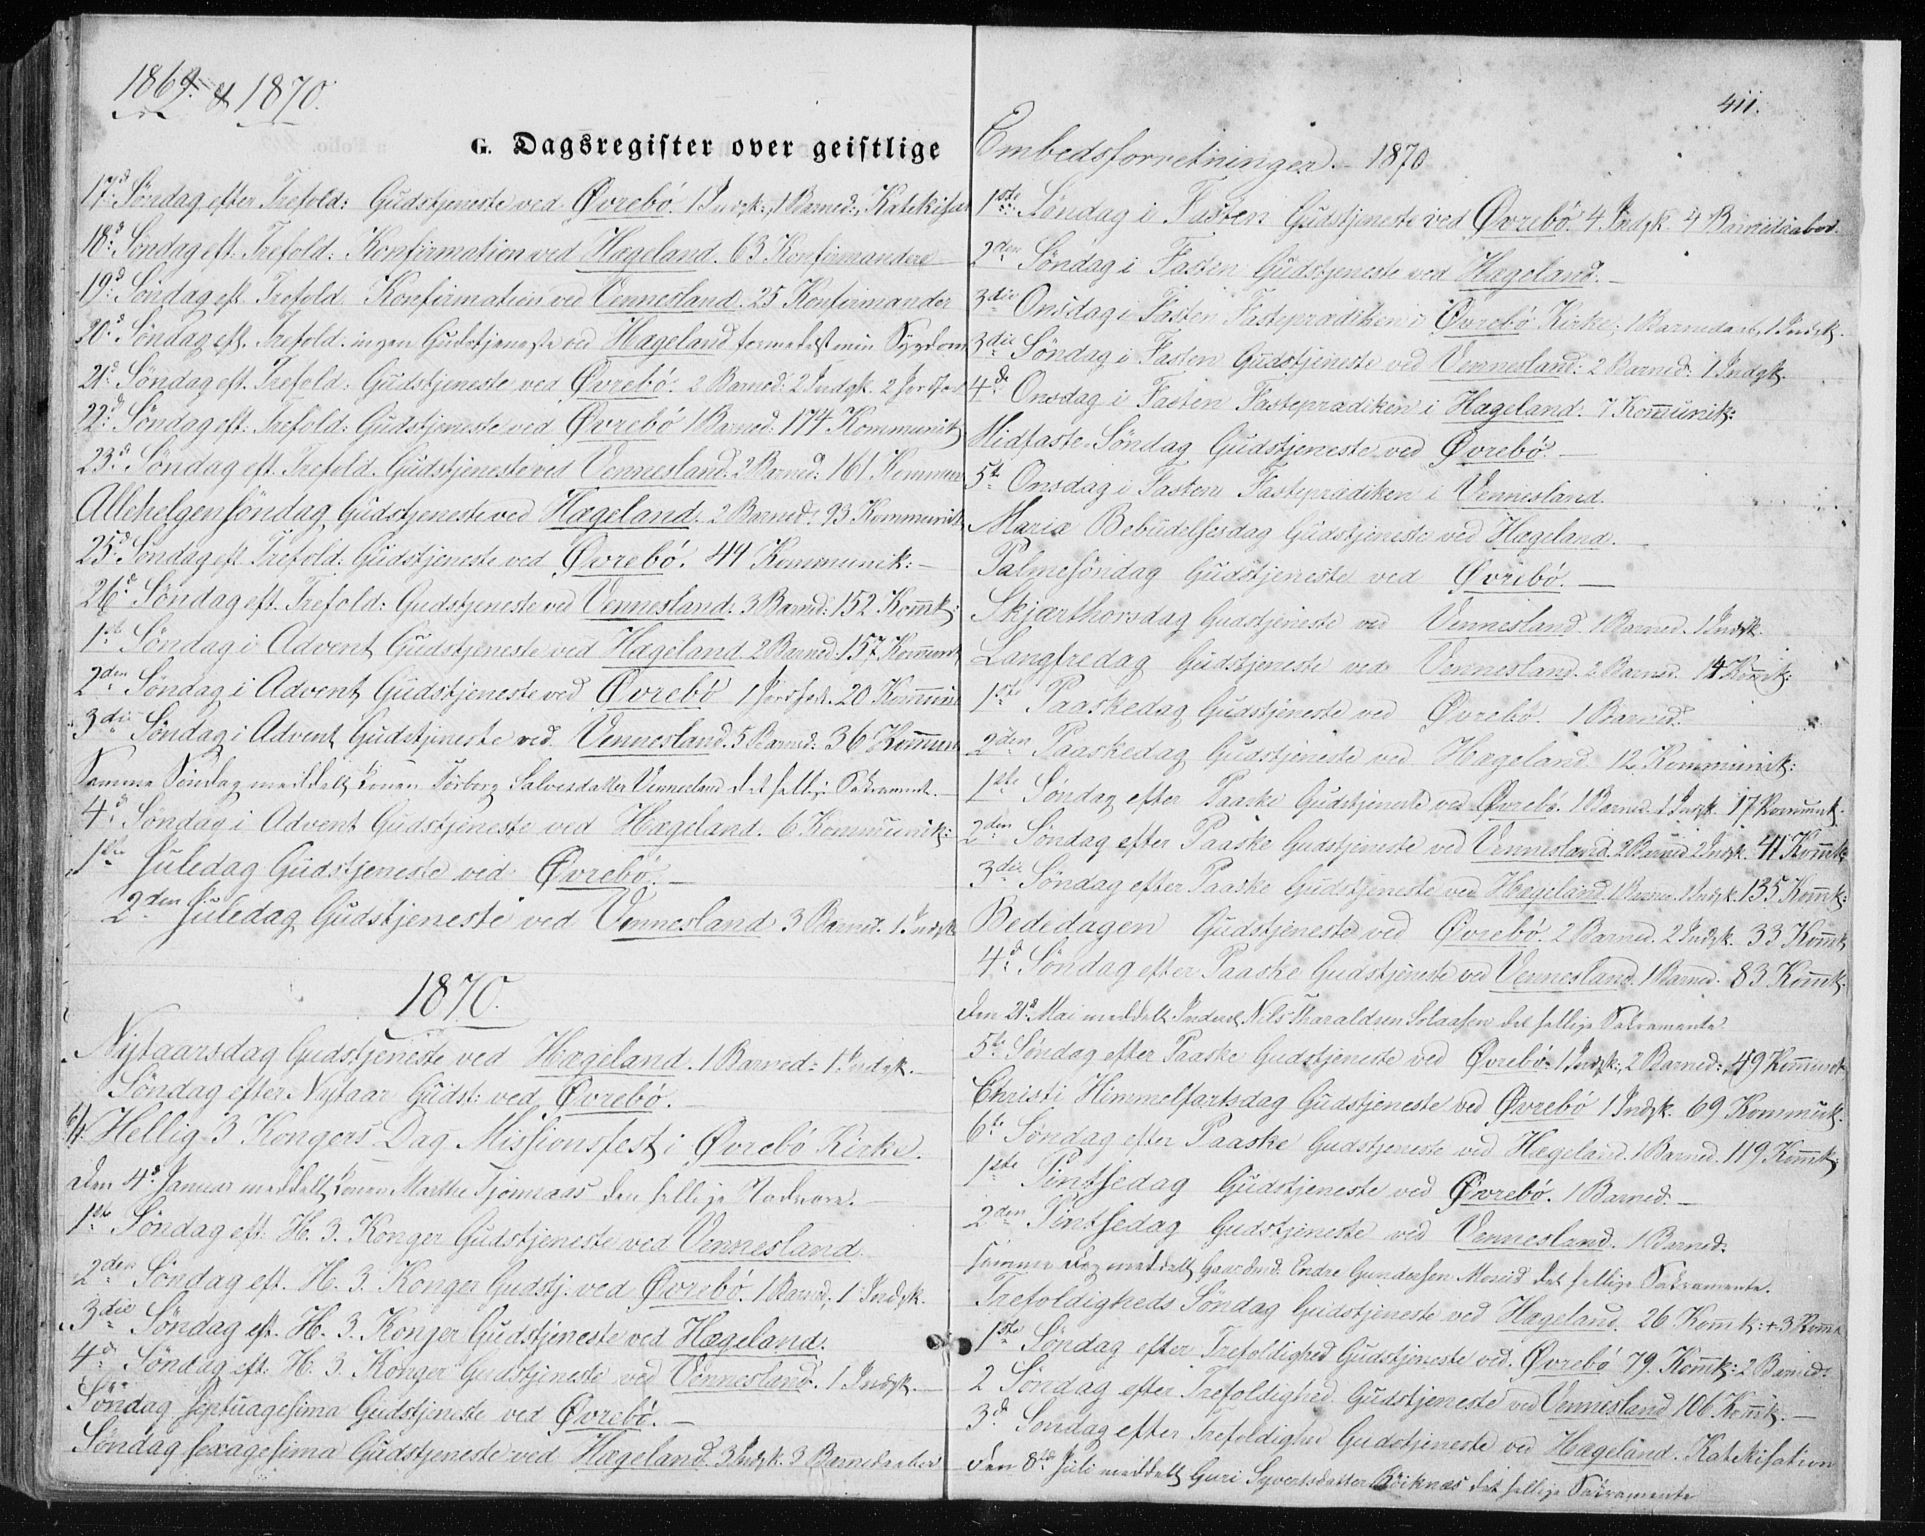 1869 & 1870.
G. Dagsregister over geistlige
17d Søndag efter Trefold: Gudstjeneste ved Øvrebö. 1 Indgk: 1 Barned:, Katekisat
18d Søndag eft. Trefold: Konfirmation ved Hægeland. 63 Konfirmandere
19d Søndag eft. Trefold. Konfirmation ved Vennesland. 25 Konfirmander
20d Søndag eft. Trefold: ingen Gudstjeneste ved Hægeland formedelst min Sygdom
21d Søndag eft. Trefold: Gudstjeneste ved Øvrebö. 2 Barned: 2 Indgk. 2 Jordf
22d Søndag eft. Trefold: Gudstjeneste ved Øvrebö 1 Barned: 174 Kommunik
23d Søndag eft. Trefold. Gudstjeneste ved Vennesland. 2 Barned: 161 Kommun
Allehelgensöndag Gudstjeneste ved Hægeland. 2 Barned: 93 Kommunik
25d Søndag eft. Trefold: Gudstjeneste ved Øvrebö. 49 Kommunik:
26d Søndag eft. Trefold: Gudstjeneste ved Vennesland: 3 Barned: 152 Komk:
1ste Søndag i Advent Gudstjeneste ved Hægeland 2 Barned: 157 Kommunk
2den Søndag i Advent Gudstjeneste ved Øvrebö 1 Jordfest. 20 Kommun
3die Søndag i Advent Gudstjeneste ved Vennesland. 5 Barned: 36 Kommun
Samme Søndag meddelt Konen Torborg Salvesdatter Vennesland det hellige Sakrament.
4d Søndag i Advent Gudstjeneste ved Hægeland. 6 Kommunik:
1ste Juledag Gudstjeneste ved Øvrebö.
2den Juledag Gudstjeneste ved Vennesland 3 Barned. 1 Indgk
1870.
Nytaarsdag Gudstjeneste ved Hægeland. 1 Barned: 1 Indgk.
Søndag efter Nytaar Gudst: ved Øvrebö.
6/1. Hellig 3 Kongers Dag Missionsfest i Øvrebö Kirke.
den 4d Januar meddelt Konen Marthe den hellige Nadvere.
1ste Søndag eft. H. 3. Konger Gudstjeneste ved Vennesland
2den Søndag eft. H. 3. Konger Gudstj. ved Øvrebö. 1 Barned, 1 Indgk.
3die Søndag eft. H. 3. Konger Gudstjeneste ved Hægeland.
4d Søndag eft. H. 3. Konger Gudstjeneste ved Vennesland. 1 Indgk.
Søndag Septuagesima Gudstjeneste ved Øvrebö.
Søndag sexagesima Gudstjeneste ved Hægeland 3 Indgk. 3 Barnedaaber
411.
Embedsforretninger. 1870
1ste Søndag i Fasten Gudstjeneste ved Øvrebö. 4 Indgk. 4 Barnedaaber.
2den Søndag i Fasten Gudstjeneste ved Hægeland.
3die Onsdag i Fasten Fasteprædiken i Øvrebö Kirke; 1 Barnedaab, 1 Indgk.
3die Søndag i Fasten Gudstjeneste ved Vennesland: 2 Barned: 1 Indgk.
4de Onsdag i Fasten Fasteprædiken i Hægeland. 7 Kommunik:
Midfaste Søndag Gudstjeneste ved Øvrebö.
5te Onsdag i Fasten Fasteprædiken i Vennesland.
Mariæ Bebudelsesdag Gudstjeneste ved Hægeland.
Palmesöndag Gudstjeneste ved Øvrebö.
Skjærthorsdag Gudstjeneste ved Vennesland 1 Barned. 1 Indgk.
Langfredag Gudstjeneste ved Vennesland. 2 Barned. 14 Komk:
1ste Paaskedag Gudstjeneste ved Øvrebö. 1 Barned.
2den Paaskedag Gudstjeneste ved Hægeland. 12 Kommunik:
1ste Søndag efter Paaske Gudstjeneste ved Øvrebö. 1 Barned. 1 Indgk. 17 Kommunk.
2den Søndag efter Paaske Gudstjeneste ved Vennesland. 2 Barned 2 Indgk. 41 Komk
3die Søndag efter Paaske Gudstjeneste ved Hægeland. 1 Barned. 1 Indgk. 135 Komk:
Bededagen Gudstjeneste ved Øvrebö. 2 Barned. 2 Indgk. 33 Komk
4d Søndag efter Paaske Gudstjeneste ved Vennesland. 1 Barned. 83 Komk.
den 21d Mai meddelt Inderst Nils Tharaldsen Solaasen det hellige Sakramente.
5te Søndag efter Paaske Gudstjeneste ved Øvrebö 1 Indgk:, 2 Barned:, 49 Kommunik
Christi Himmelfartsdag Gudstjeneste ved Øvrebö 1 Indgk. 69 Kommunk.
6te Søndag efter Paaske Gudstjeneste ved Hægeland. 1 Barned. 119 Komk;
1ste Pintsedag Gudstjeneste ved Øvrebö. 1 Barned.
2den Pintsedag Gudstjeneste ved Vennesland. 1 Barned.
samme Dag meddelt Gaardmd. Endre Gundersen Moseid det hellige Sakramente.
Trefoldigheds Søndag Gudstjeneste ved Hægeland. 26 Komk: + 3 Komk
1ste Søndag efter Trefoldighed Gudstjeneste ved Øvrebö 79. Komk: 2 Barned:
2 Søndag efter Trefoldighed Gudstjeneste ved Vennesland 106 Komk.
3d Søndag efter Trefoldighed Gudstjeneste ved Hægeland. Katekisation
den 8de Juli meddelt Guri Syvertsdatter det hellige Sakramente